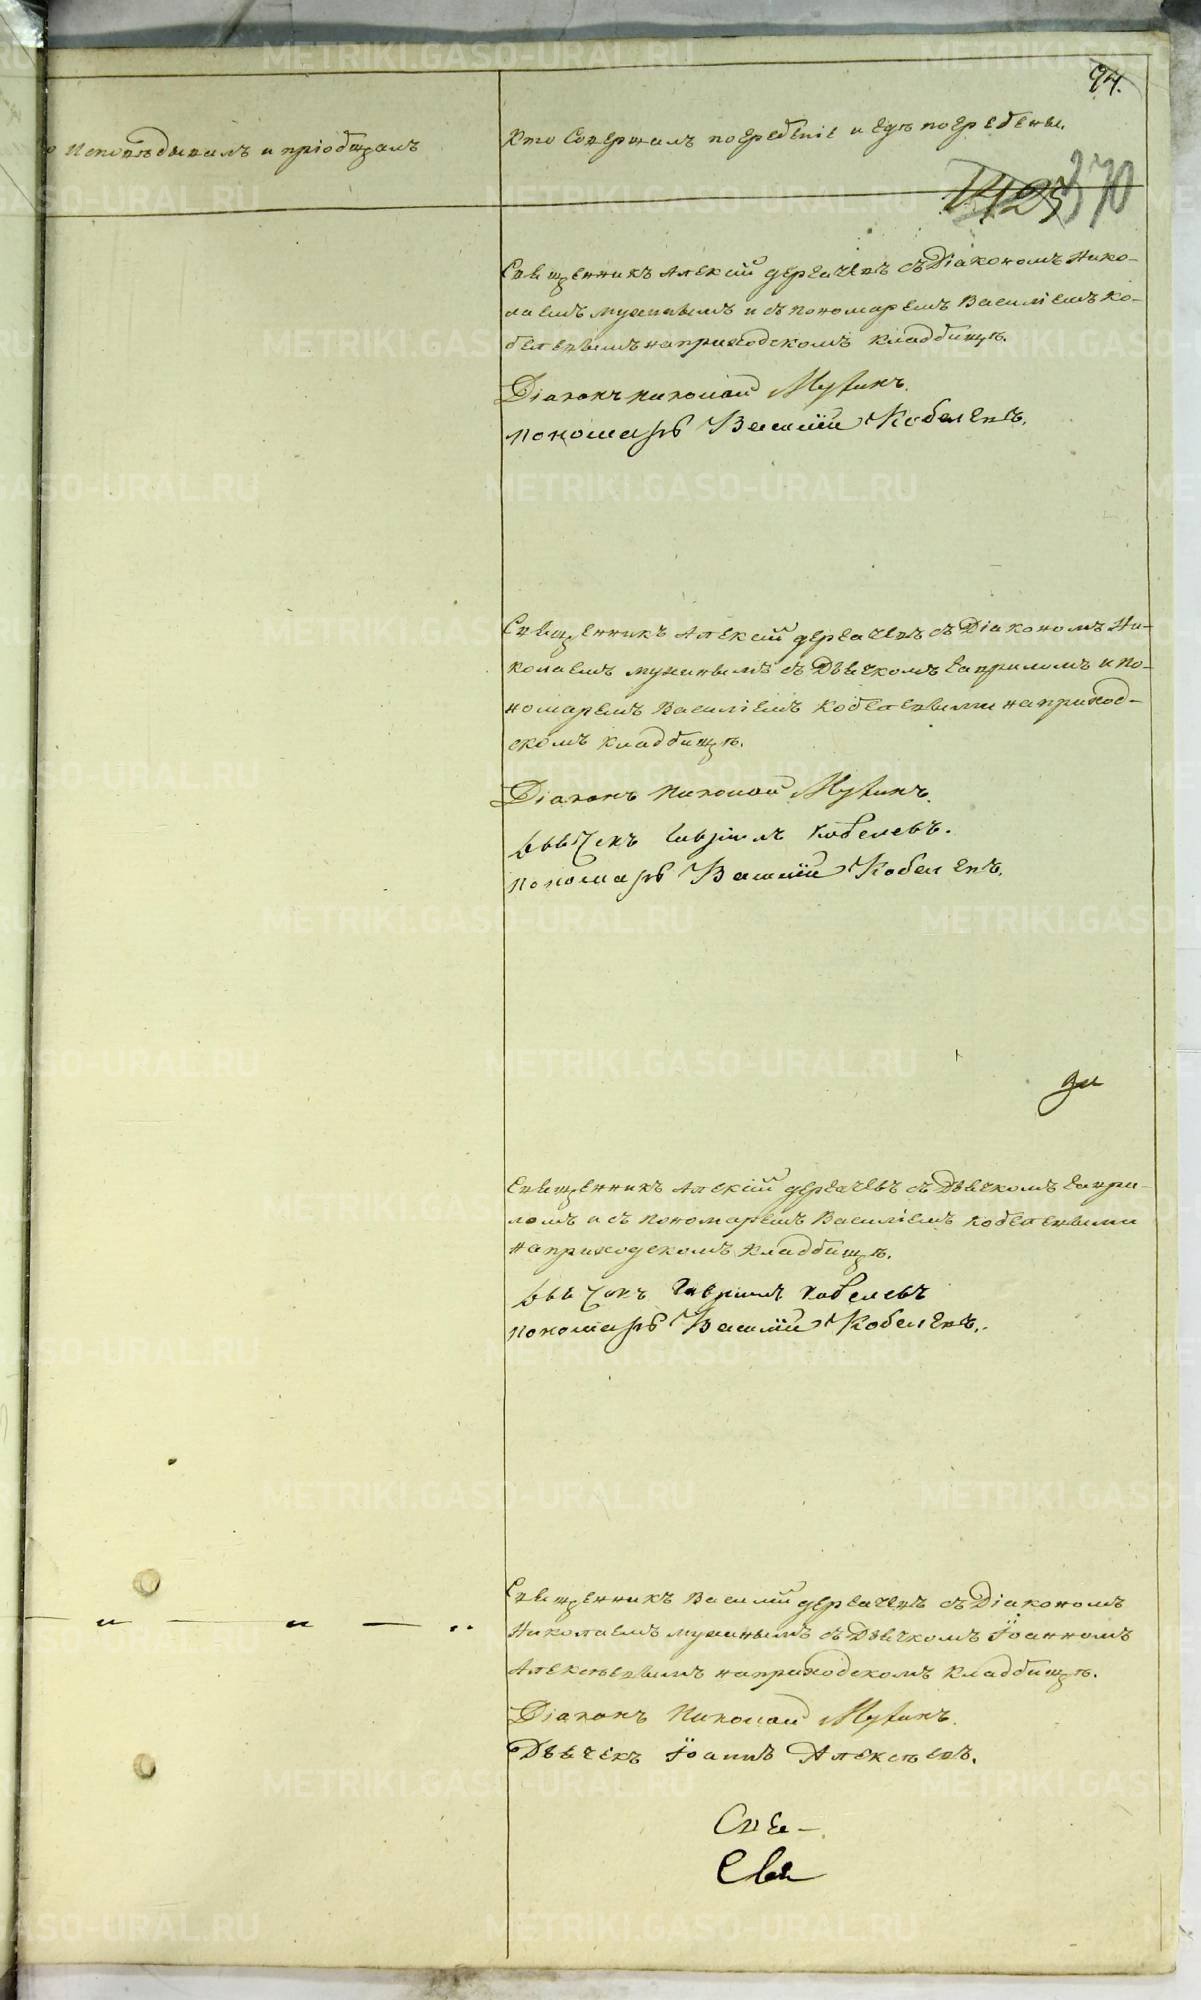 94.
Исповѣдывалъ и пріобщалъ
Кто Совершалъ погребеніе и гдѣ погребены.
1425 370
Священникъ Алексій Дергачевъ съ Діакономъ Нико-
лаемъ Мухинымъ и съ пономаремъ Василіемъ Ко-
белевымъ на приходскомъ кладбищѣ.
Діаконъ Николай Мухинъ.
пономарь Василій Кобелевъ.
Священникъ Алексій Дергачевъ съ Діакономъ Ни-
колаемъ Мухинымъ съ Дьячкомъ Гавриломъ и по-
номаремъ Василіемъ Кобелевыми на приход-
скомъ кладбищѣ.
Діаконъ Николай Мухинъ.
дьячекъ Гавріилъ Кобелевъ.
пономарь Василій Кобелевъ.
Священникъ Алексій Дергачевъ съ Дьячкомъ Гаври-
ломъ и съ пономаремъ Василіемъ Кобелевыми
на приходскомъ кладбищѣ.
дьячокъ Гаврiилъ Кобелевъ
пономарь Василій Кобелевъ.
Священникъ Василій Дергачевъ съ Діакономъ
Николаемъ Мухинымъ съ Дьячкомъ Іоанномъ
Алексѣевымъ на приходскомъ кладбищѣ.
Діаконъ Николай Мухинъ.
Дьячекъ Іоаннъ Алексѣевъ.
Свя-
Свя
METRIKI.GASO-URAL.RU